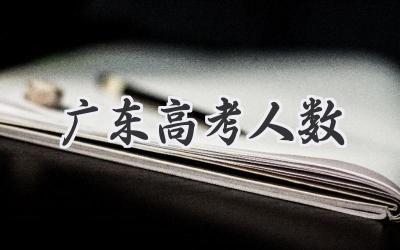 广东高考人数